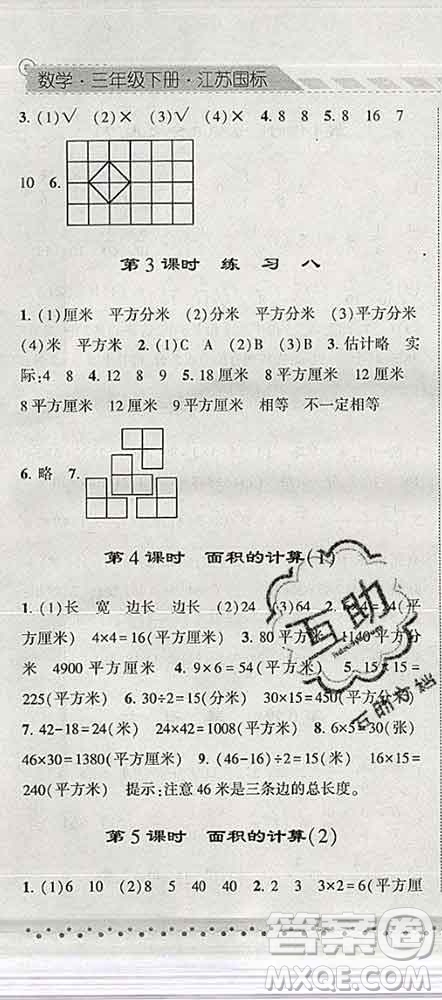 数学·三年级下册·江苏国标
3. (1)√ (2)× (3)× (4)√ 4. 8 8 5. 8 16 7
10 6.
第3课时 练 习 八
1. (1)厘米 平方分米 (2)分米 平方厘米 (3)平方分米
(4)米 平方米 2. (1)C A (2)B (3)B 3. 估计略 实
际:4 8 4. 12 5. 18厘米 8平方厘米 12厘米
8平方厘米 12厘米 9平方厘米 相等 不一定相等
6. 略 7.
第4课时 面积的计算(1)
1. (1)长 宽 边长 边长 (2)24 (3)64 2. 6×4=24(平
方厘米) 4×4=16(平方厘米) 3. 80平方厘米 1140平方分
米 4900平方厘米 4. 9×6=54(平方米) 5. 15×15=
225(平方米) 6. 30÷2=15(分米) 30×15=450(平方分米)
7. 42-18=24(米) 24×42=1008(平方米) 8. 6×5=30(张)
46×30=1380(平方厘米) 9. (46-16)÷2=15(米) 16×15=
240(平方米) 提示:注意46米是三条边的总长度。
第5课时 面积的计算(2)
1. (1)6 10 (2)8 5 40 40 2. 2 3 3×2=6(平方厘
互助
互助文档
答案圈
MXQE.COM